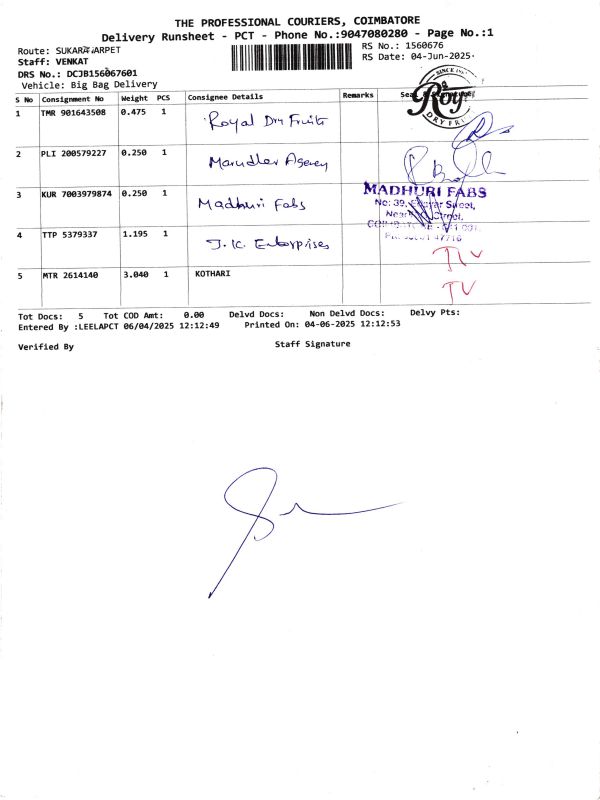 THE PROFESSIONAL COURIERS, COIMBATORE
Delivery Runsheet - PCT - Phone No.:9047080280 - Page No.:1
Route: SUKARAWARPET
RS No.: 1560676
Staff: VENKAT
RS Date: 04-Jun-2025
DRS No.: DCJB156067601
Vehicle: Big Bag Delivery
S No Consignment No Weight PCS Consignee Details Remarks Seal & Signature
1 TMR 901643508 0.475 1 Royal Dry Fruits
SINCE
Roy
DRY FR
2 PLI 200579227 0.250 1 Marudhar Agency
3 KUR 7003979874 0.250 1 Madhuri Fabs
MADHURI FABS
No: 39, Street,
Near Street,
4 TTP 5379337 1.195 1 J.K. Enterprises
5 MTR 2614140 3.040 1 KOTHARI
Tot Docs: 5 Tot COD Amt: 0.00 Delvd Docs: Non Delvd Docs: Delvy Pts:
Entered By :LEELAPCT 06/04/2025 12:12:49 Printed On: 04-06-2025 12:12:53
Verified By Staff Signature